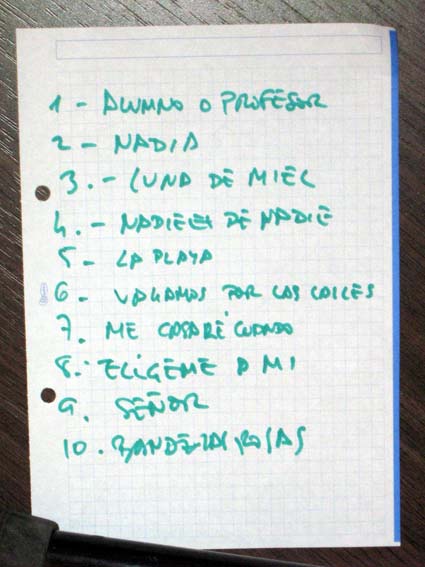 1 - ALUMNO O PROFESOR
2 - NADIA
3.- LUNA DE MIEL
4.- NADIE ES DE NADIE
5 - LA PLAYA
6 - VAGAMOS POR LAS CALLES
7. ME CASARÉ CUANDO
8.- ELIGEME A MI
9. SEÑOR
10. BANDERAS ROSAS